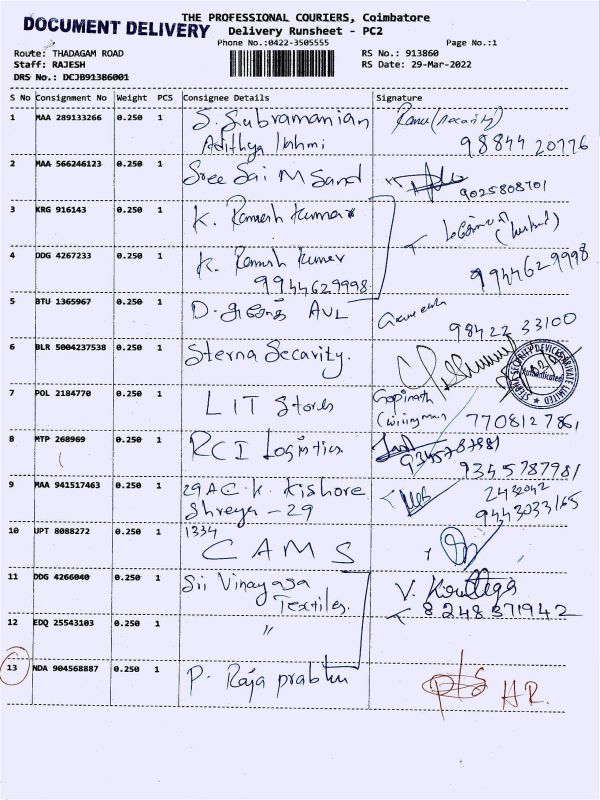 DOCUMENT DELIVERY
THE PROFESSIONAL COURIERS, Coimbatore
Delivery Runsheet - PC2
Phone No.:0422-3505555 Page No.:1
Route: THADAGAM ROAD RS No.: 913860
Staff: RAJESH RS Date: 29-Mar-2022
DRS No.: DCJB913B6001
S No Consignment No Weight PCS Consignee Details Signature
1 MAA 289133266 0.250 1 S. Subramanian (Security)
Adithya 98844 20776
2 MAA 566246123 0.250 1 Sree Sai M Sand
9025808701
3 KRG 916143 0.250 1 K. Ramesh Kumar
4 DDG 4267233 0.250 1 K. Ramesh Kumar
9944629998 9944629998
5 BTU 1365967 0.250 1 D. AVL
98422 33100
6 BLR 5004237538 0.250 1 Sterna Security.
STERNA SECURITY DEVICES PRIVATE LIMITED
Authenticated
7 POL 2184770 0.250 1 LIT Stores Gopinath
770812 7861
8 MTP 268969 0.250 1 RCI Logistics
9345787981
9345787981
9 MAA 941517463 0.250 1 29 A C. K. Kishore 2432042
Shreya - 29 9443033165
10 UPT 8088272 0.250 1 1334
CAMS
11 DDG 4266040 0.250 1 Sri Vinayaga V.
Textiles. 8248371942
12 EDQ 25543103 0.250 1 "
13 NDA 904568887 0.250 1 P. Raja prabhu H.R.